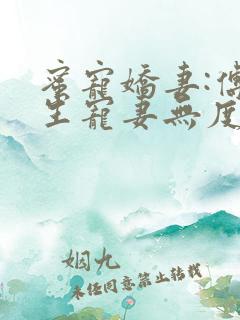 蜜寵嬌妻:傅
生寵妻無度
姻九
未任同意禁止转载